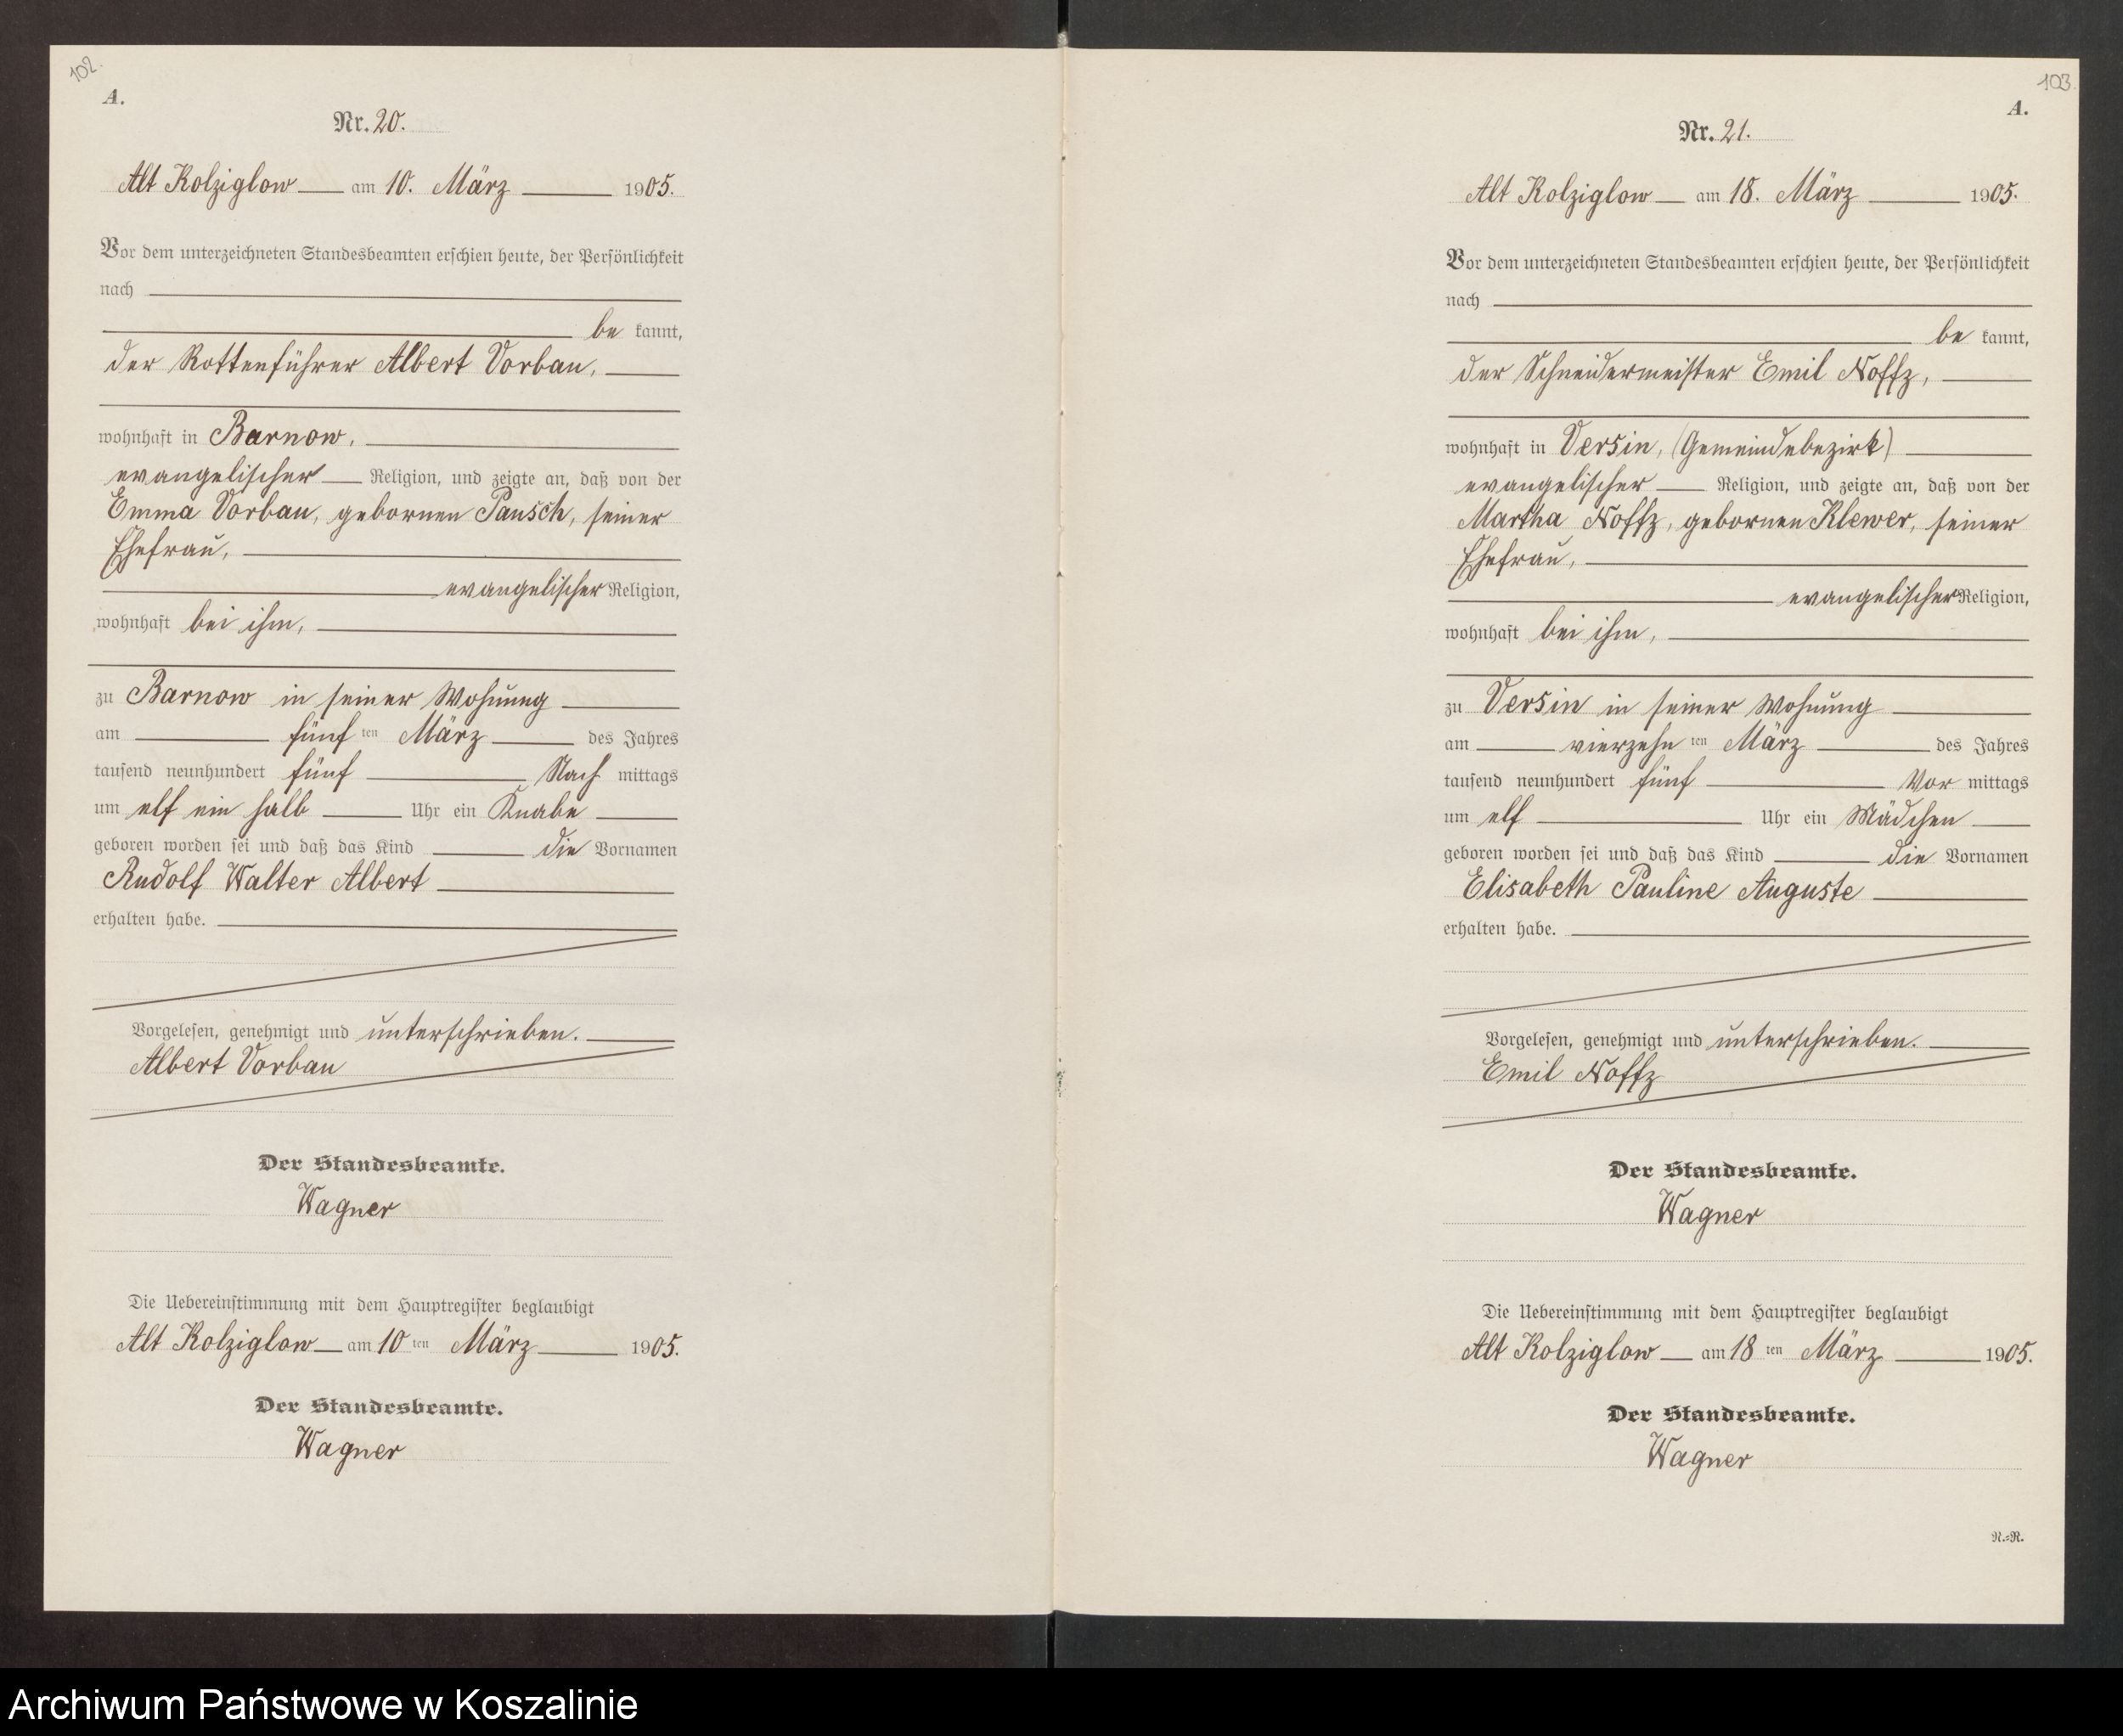 102.
A.
Nr. 20.
Alt Kolziglow am 10. März 1905.
Vor dem unterzeichneten Standesbeamten erschien heute, der Persönlichkeit
nach
be kannt,
der Rottenführer Albert Vorbau,
wohnhaft in Barnow,
evangelischer Religion, und zeigte an, daß von der
Emma Vorbau, gebornen Pansch, seiner
Ehefrau,
evangelischer Religion,
wohnhaft bei ihm,
zu Barnow in seiner Wohnung
am fünf ten März des Jahres
tausend neunhundert fünf Nach mittags
um elf ein halb Uhr ein Knabe
geboren worden sei und daß das Kind die Vornamen
Rudolf Walter Albert
erhalten habe.
Vorgelesen, genehmigt und unterschrieben.
Albert Vorbau
Der Standesbeamte.
Wagner
Die Uebereinstimmung mit dem Hauptregister beglaubigt
Alt Kolziglow am 10 ten März 1905.
Der Standesbeamte.
Wagner
103.
A.
Nr. 21.
Alt Kolziglow am 18. März 1905.
Vor dem unterzeichneten Standesbeamten erschien heute, der Persönlichkeit
nach
be kannt,
der Schneidermeister Emil Noffz,
wohnhaft in Versin, (Gemeindebezirk)
evangelischer Religion, und zeigte an, daß von der
Martha Noffz, gebornen Klewer, seiner
Ehefrau,
evangelischer Religion,
wohnhaft bei ihm,
zu Versin in seiner Wohnung
am vierzehn ten März des Jahres
tausend neunhundert fünf Vor mittags
um elf Uhr ein Mädchen
geboren worden sei und daß das Kind die Vornamen
Elisabeth Pauline Auguste
erhalten habe.
Vorgelesen, genehmigt und unterschrieben.
Emil Noffz
Der Standesbeamte.
Wagner
Die Uebereinstimmung mit dem Hauptregister beglaubigt
Alt Kolziglow am 18 ten März 1905.
Der Standesbeamte.
Wagner
N.=R.
Archiwum Państwowe w Koszalinie